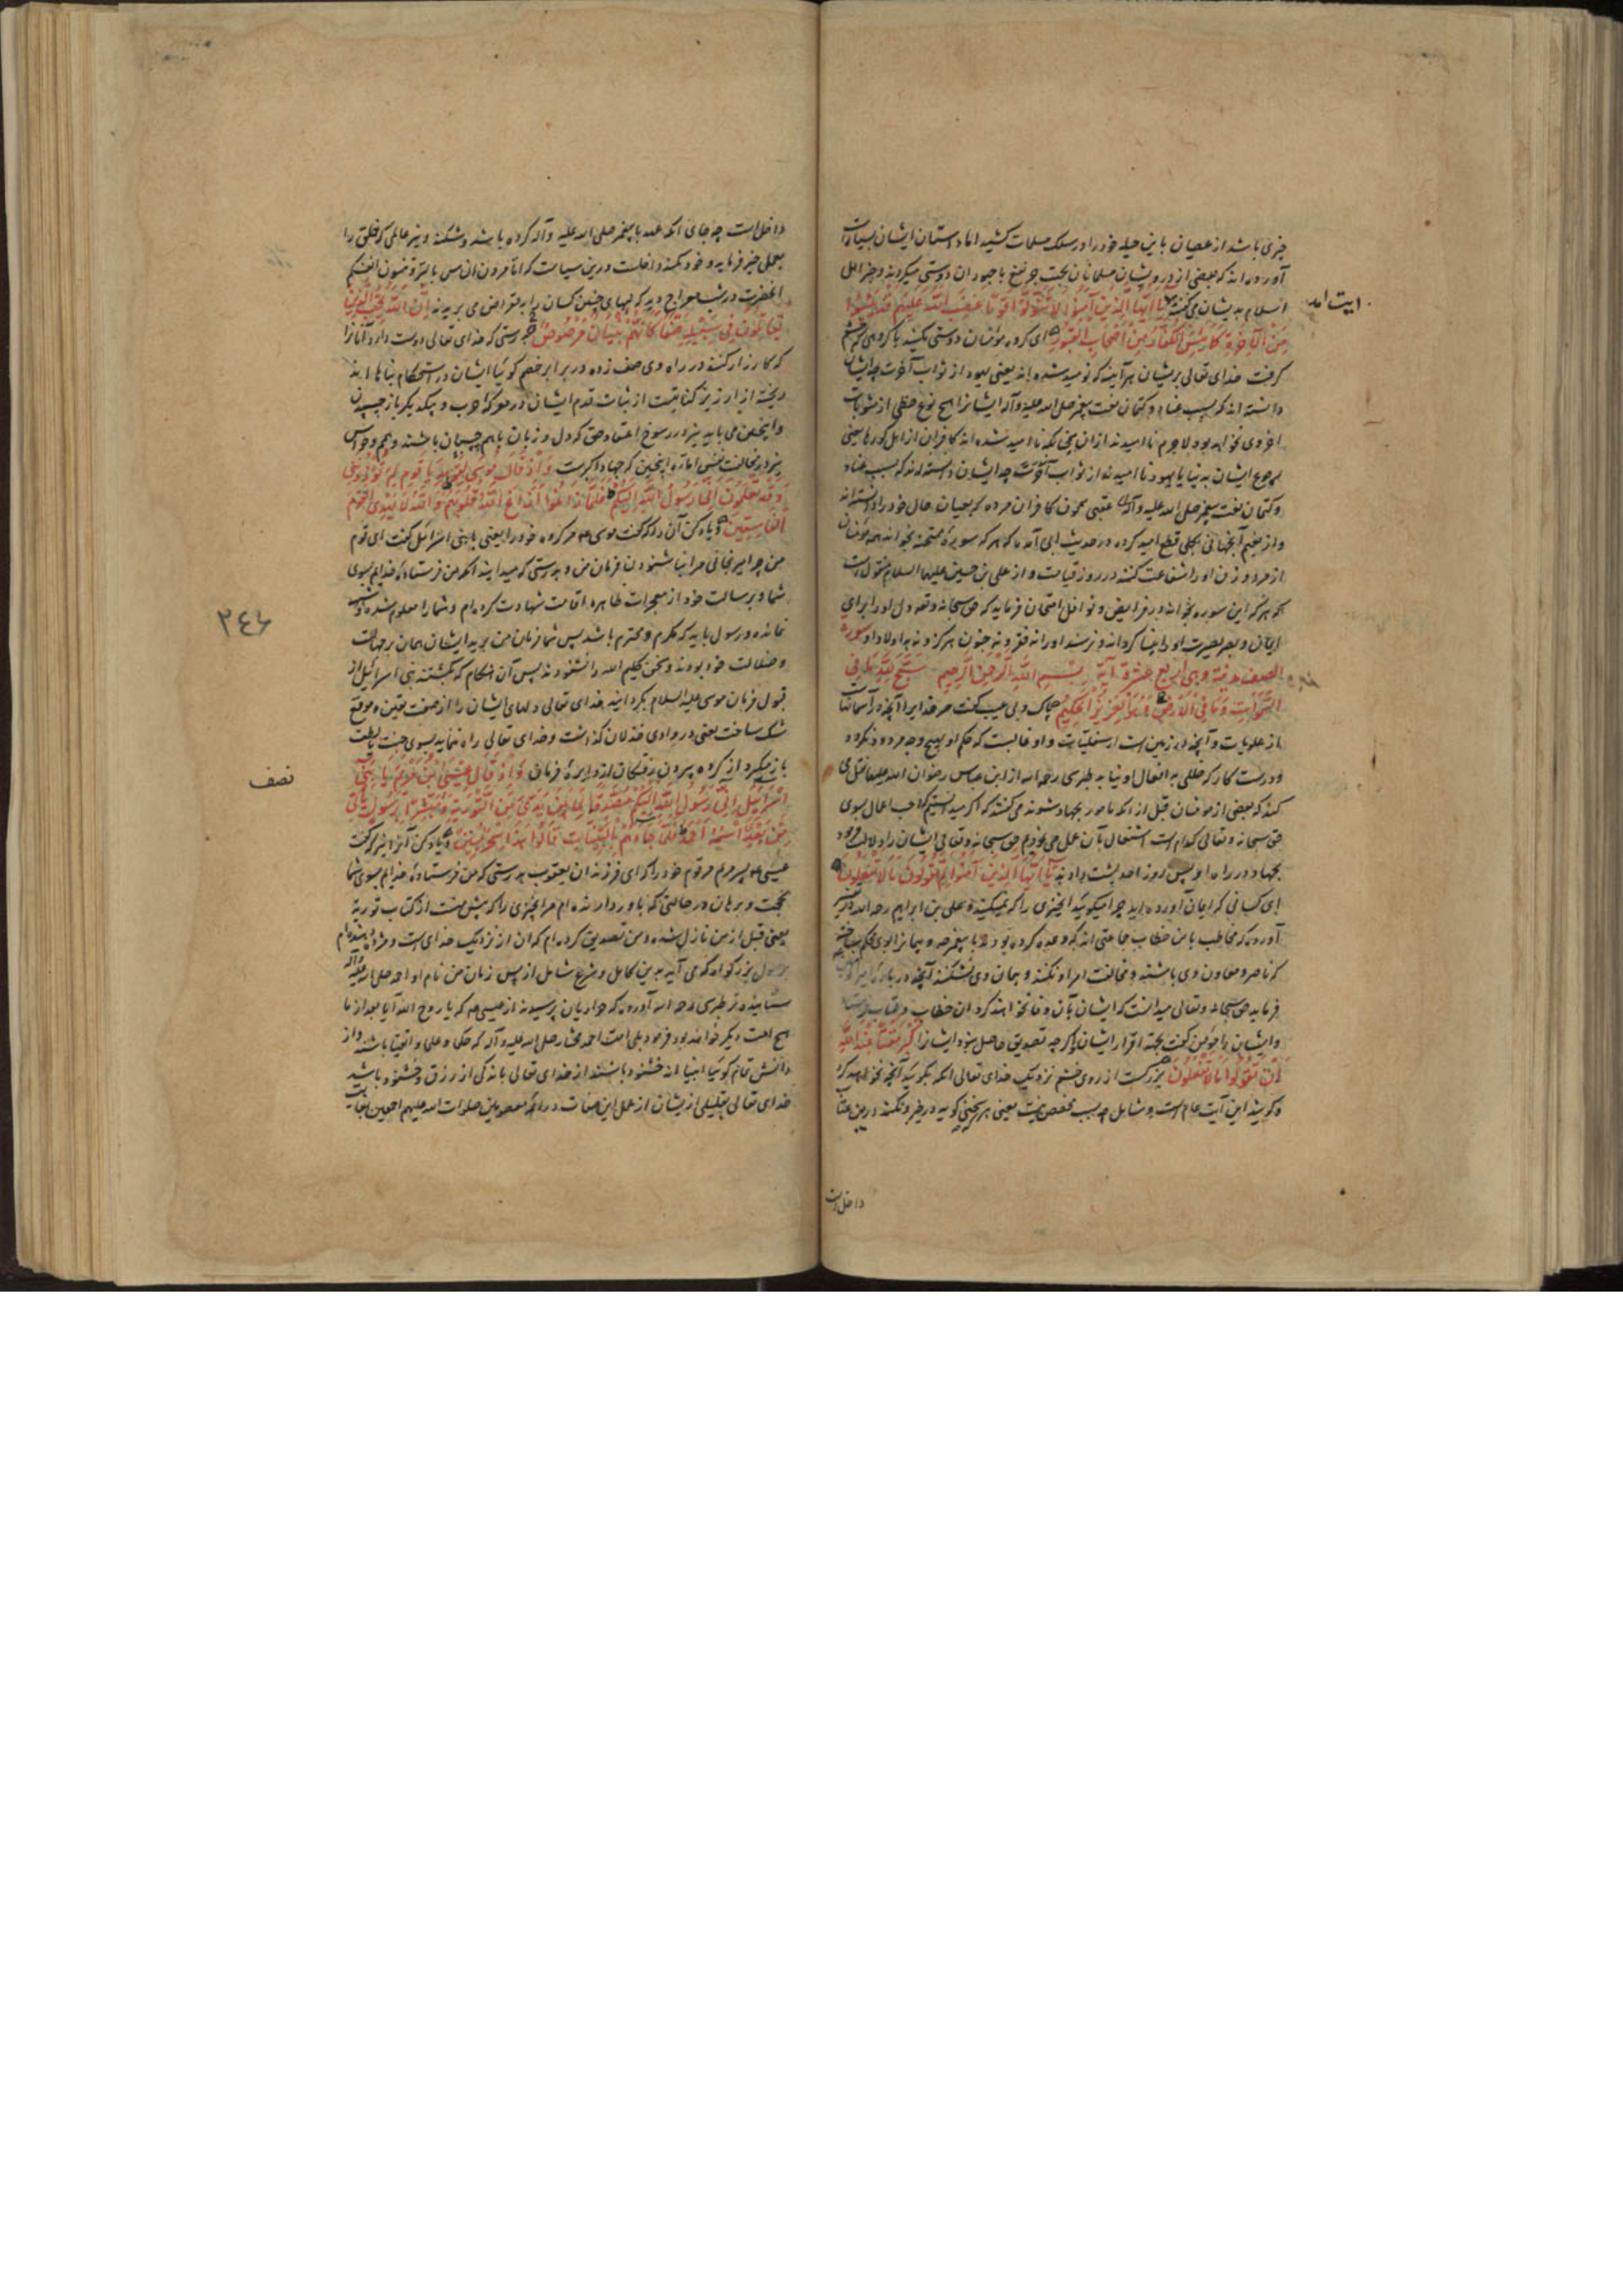 چیزی باشد از عصیان باین حیله خود را در سلک مسلمات کشید اما داستان ایشان بسیارست
آورده‌اند که بعضی از درویشان مسلمانان بجهت جر نفع با جهودان دوستی میکردند و خبر اهل
اسلام بدیشان می‌گفتند یَا أَیُّهَا الَّذِینَ آمَنُوا لَا تَتَوَلَّوْا قَوْمًا غَضِبَ اللَّهُ عَلَیْهِمْ قَدْ یَئِسُوا
مِنَ الْآخِرَةِ کَمَا یَئِسَ الْکُفَّارُ مِنْ أَصْحَابِ الْقُبُورِ ای گروه مؤمنان دوستی مکنید با گروهی که خشم
گرفت خدای تعالی بریشان هرآینه که نومید شده‌اند یعنی یهود از ثواب آخرت چه ایشان
دانسته‌اند که بسبب عناد و کتمان نعت پیغمبر صلی الله علیه وآله ایشانرا هیچ نوع حظی از مثوبات
اخروی نخواهد بود لاجرم ناامیدند از ان همچنانکه ناامید شده‌اند کافران از اهل گورها یعنی
برجوع ایشان بدنیا یا یهود ناامیدند از ثواب آخرت چه ایشان دانسته‌اند که بسبب عناد
و کتمان نعت پیغمبر صلی الله علیه وآله
و از نعیم آنجهانی بکلی قطع امید کرده در حدیث ابی آمده که هر که سوره ممتحنه بخواند همه مؤمنان
از مرد و زن او را شفاعت کنند در روز قیامت و از علی بن حسین علیهما السلام منقول است
که هر که این سوره بخواند در فرایض و نوافل امتحان فرماید حق سبحانه وتعالی دل او را برای
ایمان و بصر بصیرت او را بینا گرداند و نرسد او را نه فقر و نه جنون هرگز و نه به اولاد او سوره
الصف مدنیة وهی اربع عشرة آیة بِسْمِ اللَّهِ الرَّحْمَنِ الرَّحِیمِ سَبَّحَ لِلَّهِ مَا فِی
السَّمَوَاتِ وَمَا فِی الْأَرْضِ وَهُوَ الْعَزِیزُ الْحَکِیمُ بپاکی و بی عیب گفت مر خدایرا آنچه در آسمانهاست
از علویات و آنچه در زمین است از سفلیات و او غالبست که حکم او بهیچ وجه مردود نگردد
و درست کار که خللی به افعال او نیابد طبرسی رحمه الله از ابن عباس رضوان الله علیه نقل می
کند که بعضی از مومنان قبل از انکه مامور بجهاد شوند می‌گفتند که اگر میدانستیم که احب اعمال بسوی
حق سبحانه وتعالی کدام است اشتغال بآن عمل می‌نمودیم حق سبحانه وتعالی ایشان را دلالت فرمود
بجهاد در راه او پس روز احد پشت دادند یَا أَیُّهَا الَّذِینَ آمَنُوا لِمَ تَقُولُونَ مَا لَا تَفْعَلُونَ
ای کسانی که ایمان آورده‌اید چرا میگوئید آنچیزی را که نمیکنید علی بن ابراهیم رحمه الله در تفسیر
آورده که مخاطب باین خطاب جماعتی اند که وعده کرده بودند با پیغمبر
که ناصر و معاون وی باشند و مخالفت امر او نکنند و پیمان وی نشکنند آنچه درباره امیر
فرماید حق سبحانه وتعالی میدانست که ایشان بآن وفا نخواهند کرد ان خطاب
و ایشان را مؤمن گفت بجهة اقرار ایشان اگرچه تصدیق حاصل نبود ایشانرا کَبُرَ مَقْتًا عِنْدَ اللَّهِ
أَنْ تَقُولُوا مَا لَا تَفْعَلُونَ بزرگست از روی خشم نزدیک خدای تعالی انکه بگوئید آنچه نخواهید کرد
و گویند این آیت عام است و شامل چه سبب مخصص نیست یعنی هر که سخنی گوید و نکند درین عتاب
داخل است
ایت امد
داخل است چه جای انکه عهد با پیغمبر صلی الله علیه وآله کرده باشد و شکند و نیز عالمی که خلق را
بعمل خیر فرماید و خود نکند داخلست درین سیاست که اتأمرون الناس بالبر وتنسون انفسکم
آنحضرت در شب معراج دید که لبهای چنین کسان را به مقراض می بریدند إِنَّ اللَّهَ یُحِبُّ الَّذِینَ
یُقَاتِلُونَ فِی سَبِیلِهِ صَفًّا کَأَنَّهُمْ بُنْیَانٌ مَرْصُوصٌ بدرستی که خدای تعالی دوست دارد آنانرا
که کارزار کنند در راه وی صف زده در برابر خصم گوئیا ایشان در استحکام بناها اند
ریخته از ارزیز کنایتست از ثبات قدم ایشان در معرکه حرب و بیکدیگر باز چسپیدن
و اینچنین می باید نیز در رسوخ اعتقاد حق که دل و زبان باهم چسپان باشند
نیز در مخالفت نفس اماره اینچنین که جهاد اکبرست وَإِذْ قَالَ مُوسَى لِقَوْمِهِ یَا قَوْمِ لِمَ تُؤْذُونَنِی
وَقَدْ تَعْلَمُونَ أَنِّی رَسُولُ اللَّهِ إِلَیْکُمْ فَلَمَّا زَاغُوا أَزَاغَ اللَّهُ قُلُوبَهُمْ وَاللَّهُ لَا یَهْدِی الْقَوْمَ
الْفَاسِقِینَ و یاد کن آن را که گفت موسی مر گروه خود را یعنی با بنی اسرائیل گفت ای قوم
من چرا میرنجانی مرا بناشنودن فرمان من و بدرستی که میدانید انکه من فرستاده خدایم بسوی
شما و بر رسالت خود از معجزات ظاهره اقامت شهادت کرده‌ام و شما را معلوم شده و شبهه
نمانده و رسول باید که مکرم و محترم باشد پس شما فرمان من برید ایشان همان بر جهالت
و ضلالت خود بودند و سخن کلیم الله را نشنودند پس آن هنگام که بگشتند بنی اسرائیل از
قبول فرمان موسی علیه السلام بگردانید خدای تعالی دلهای ایشان را از صفت یقین و موقع
شک ساخت یعنی در وادی خذلان گذاشت و خدای تعالی راه ننماید بسوی جنت
گروه بیرون رفتگان از دایره فرمان وَإِذْ قَالَ عِیسَى ابْنُ مَرْیَمَ یَا بَنِی
إِسْرَائِیلَ إِنِّی رَسُولُ اللَّهِ إِلَیْکُمْ مُصَدِّقًا لِمَا بَیْنَ یَدَیَّ مِنَ التَّوْرَیةِ وَمُبَشِّرًا بِرَسُولٍ یَأْتِی
مِنْ بَعْدِی اسْمُهُ أَحْمَدُ فَلَمَّا جَاءَهُمْ بِالْبَیِّنَاتِ قَالُوا هَذَا سِحْرٌ مُبِینٌ و یاد کن آنرا نیز که گفت
عیسی پسر مریم مر قوم خود را که ای فرزندان یعقوب بدرستی که من فرستاده خدایم بسوی شما
بحجت و برهان در حالتی که باور دارنده‌ام مر آنچیزی را که پیش منست از کتاب توریة
یعنی قبل از من نازل شده و من تصدیق کرده‌ام که ان از نزدیک خدای است و مژده دهنده‌ام
برسول بزرگوار که می آید بدین کامل و شرع شامل از پس زمان من نام او احمد صلی الله علیه وآله
طبرسی رحمه الله آورده که حواریان پرسیدند از عیسی که یا روح الله آیا بعد از ما
هیچ امت دیگر خواهند بود فرمود بلی امت احمد مختار صلی الله علیه وآله که حکما و علما و اتقیا باشند و از
دانش تمام گوئیا انبیااند خشنود باشند از خدای تعالی باندکی از رزق و خشنود باشد
خدای تعالی بقلیلی ازیشان از عمل این صفات در ائمه معصومین صلوات الله علیهم اجمعین
نصف